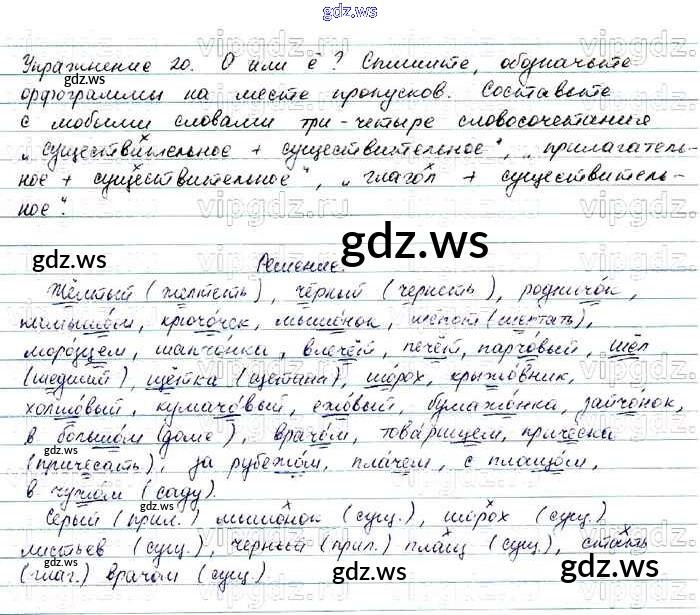 gdz.ws
Упражнение 20. О или ё? Спишите, обозначьте
орфограммы на месте пропусков. Составьте
с любыми словами три-четыре словосочетания
„существительное + существительное“, „прилагатель-
ное + существительное“, „глагол + существитель-
ное“.
gdz.ws
Решение.
Жёлтый (желтеть), чёрный (чернеть), родничок,
малышом, крючочек, мышонок, шёпот (шептать),
морозцем, шапчонки, влечёт, печёт, парчовый, шёл
(шедший), щётка (щетина), шорох, крыжовник,
холщовый, кумачовый, ежовый, бумажонка, зайчонок,
в большом (доме), врачом, товарищем, причёска
(причесать), за рубежом, плачем, с плащом,
в чужом (саду).
Серый (прил.) мышонок (сущ.), шорох (сущ.)
листьев (сущ.), черный (прил.) плащ (сущ.), стать
(глаг.) врачом (сущ.)
gdz.ws